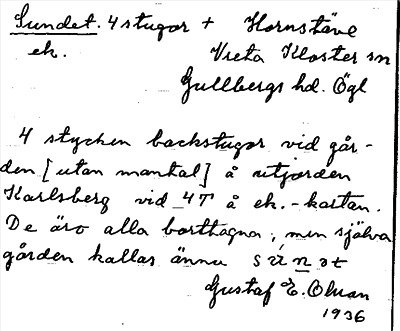 Sundet. 4 stugor + Hornstäve
ek. Vreta Kloster sn
Gullbergs hd. Ögl
4 stycken backstugor vid går-
den [utan mantal] å utjorden
Karlsberg vid 4T å ek.-kartan.
De äro alla borttagna, men själva
gården kallas ännu
Gustaf E. Olson
1936